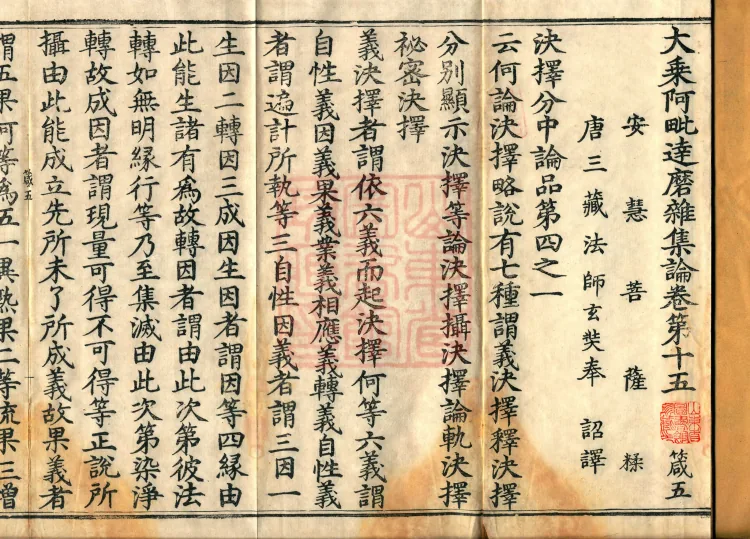 大乘阿毗達磨雜集論卷第十五 箴五
安慧菩薩糅
唐三藏法師玄奘奉 詔譯
決擇分中論品第四之一
云何論決擇略說有七種謂義決擇釋決擇
分別顯示決擇等論決擇攝決擇論軌決擇
祕密決擇
義決擇者謂依六義而起決擇何等六義謂
自性義因義果義業義相應義轉義自性義
者謂遍計所執等三自性因義者謂三因一
生因二轉因三成因生因者謂因等四緣由
此能生諸有為故轉因者謂由此次第彼法
轉如無明緣行等乃至集滅由此次第染淨
轉故成因者謂現量可得不可得等正說所
攝由此能成立先所未了所成義故果義者
箴五
謂五果何等為五一異熟果二等流果三增